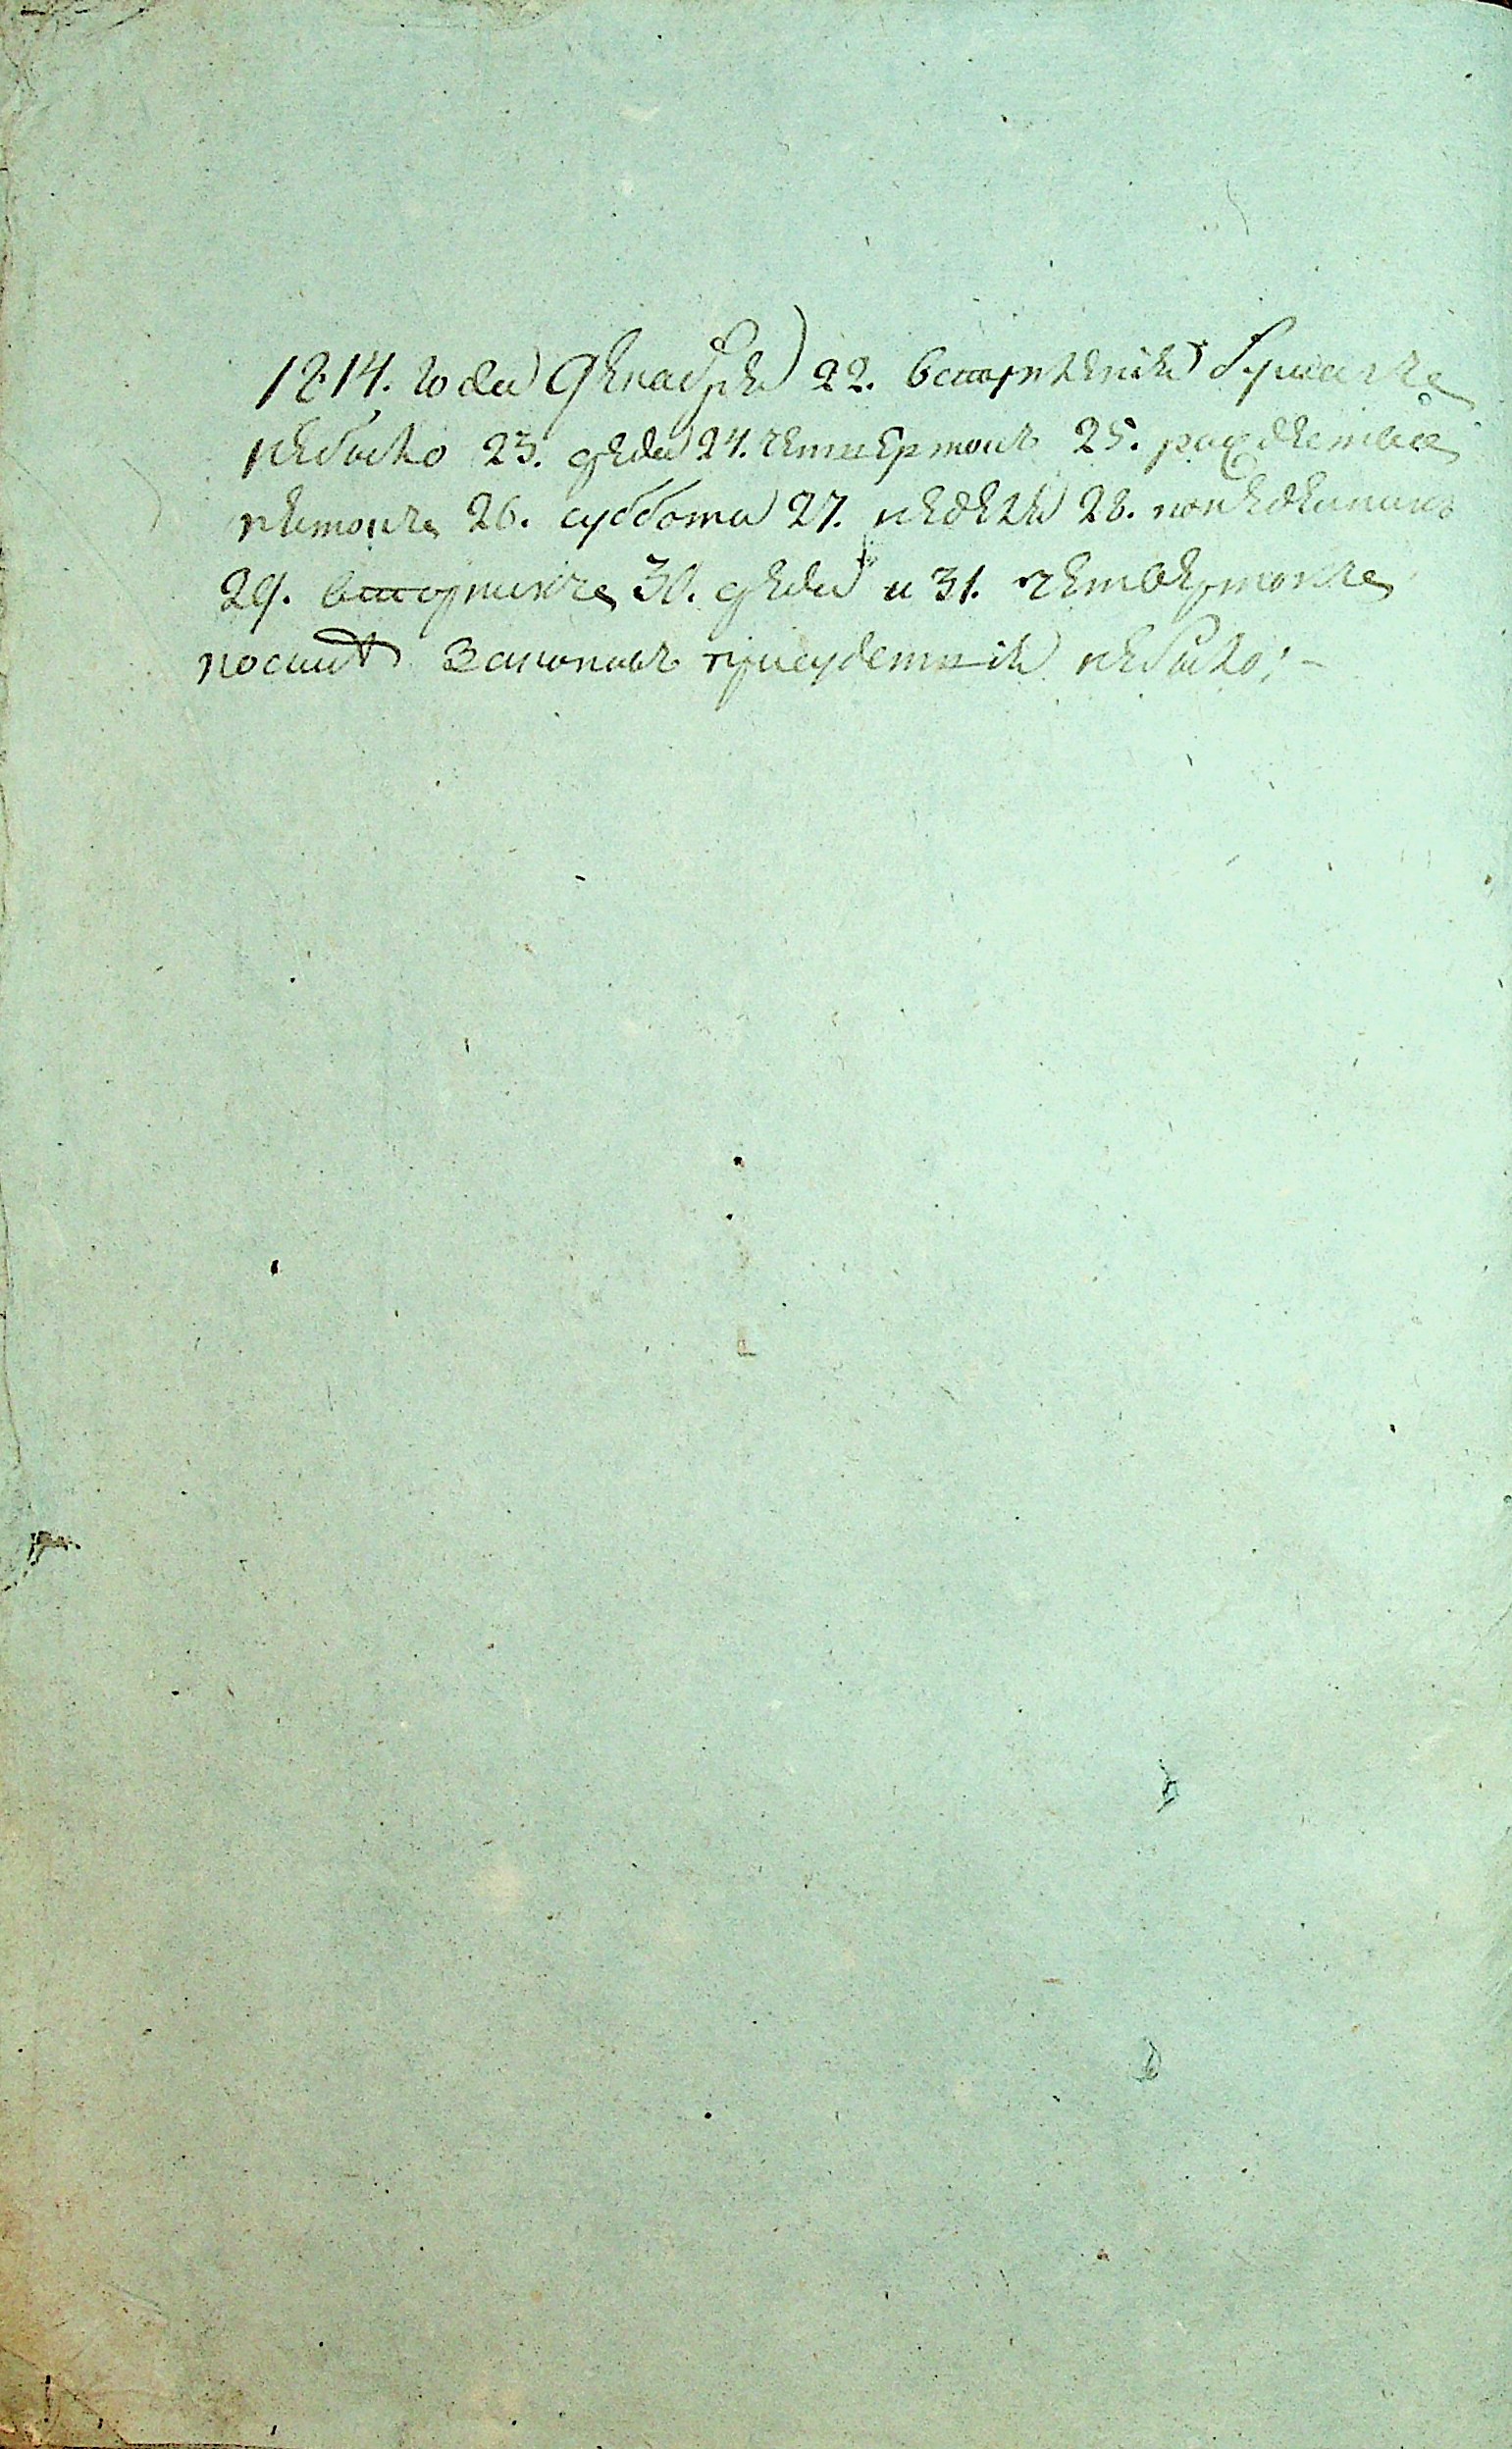 1814. года декабря 22. вступления бумагъ
небыло 23. среда 24. четвертокъ 25. рождество
пятокъ 26. суббота 27. неделя 28. понедельникъ
29. вторникъ 30. среда и 31. четвертокъ
посилѣ законовъ присудствия небыло:-